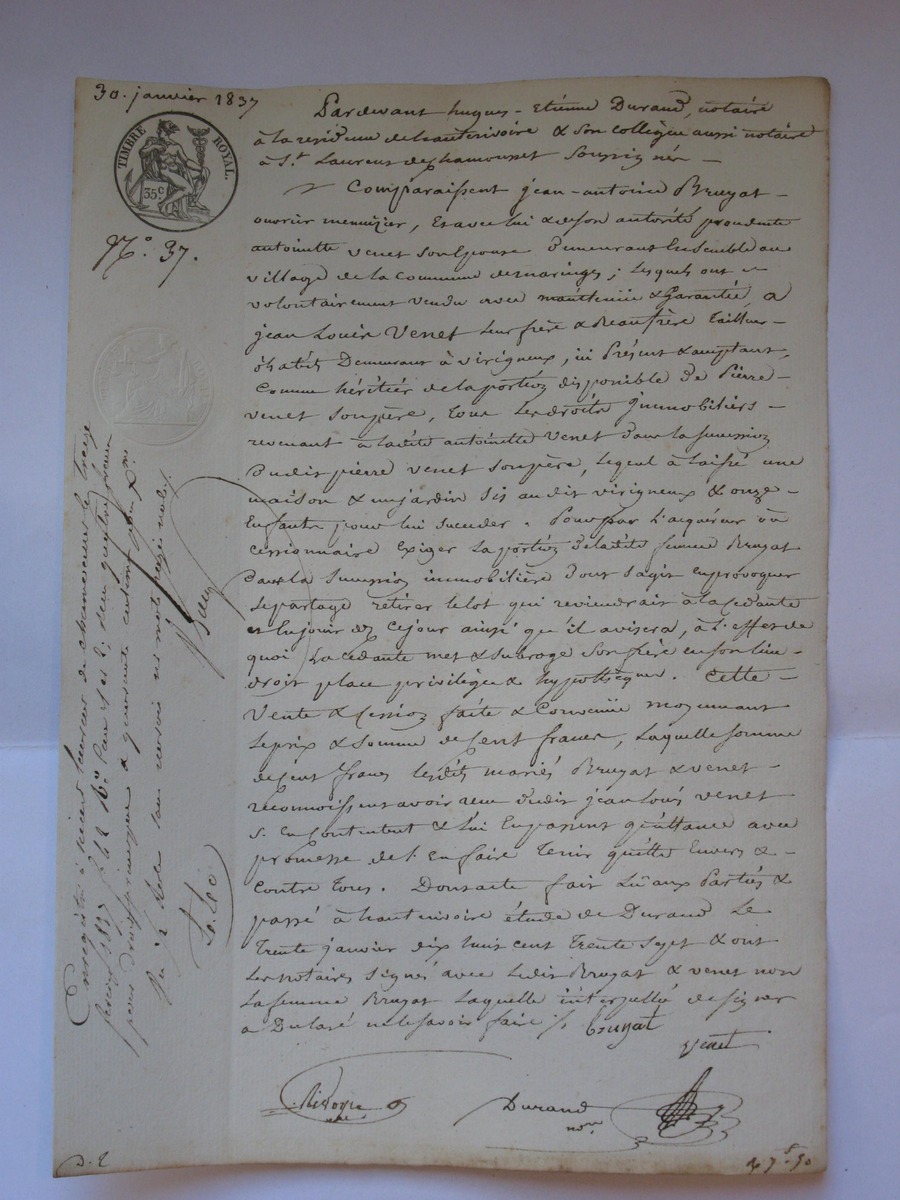 30. janvier 1837
TIMBRE ROYAL.
35c
N.° 37.
Pardevant hugues-Etienne Durand, notaire
à la residence de hauterivoire & son collègue aussi notaire
à S.t Laurent de chamousset soussignés
Comparaissent jean-antoine Bruyat
ouvrier menuizier, et avec lui & de son autorité procedente
antoinette venet son épouse demeurant ensemble au
village de la commune de maringes; lesquels ont
volontairement vendu avec maintenüe & Garantie, a
jean Louis Venet leur frère & Beaufrère tailleur
d'habits Demeurant à virigneux, ici Présent & acceptant,
comme héritier de la portion disponible de Pierre
venet son père, tous les droits immobiliers
revenant à ladite antoinette Venet dans la succession
dudit pierre venet son père, lequel à laissé une
maison & un jardin sis audit virigneux & onze
Enfants pour lui succeder. Pour par l'acquéreur ou
cessionnaire exiger la portion de ladite femme Bruyat
dans la succession immobilière dont s'agit en provoquer
le partage retirer le lot qui reviendrait à la cédante
et en jouir dez ce jour ainsi qu'il avisera, à l'effet de
quoi la cedante met & subroge son frère en son lieu
droit place privilége & hypothèque. Cette
vente & cession faite & convenüe moyennant
le prix & somme de cent francs, laquelle somme
de cent francs lesdits mariés Bruyat & venet
reconnoissent avoir reçu dudit jean louis venet
s'en contentent & lui en passent quittance avec
promesse de l'en faire tenir quitte Envers &
contre tous. Dont acte fait lû aux Parties &
passé à hauterivoire étude de Durand Le
trente janvier dix huit cent trente sept & ont
les notaires signés avec ledit Bruyat & venet non
la femme Bruyat laquelle interpellée de signer
a Déclaré ne le savoir faire
bruyat
venet
Durand
nore
Enregistré à Saint Laurent de chamousset le treize
février 1837